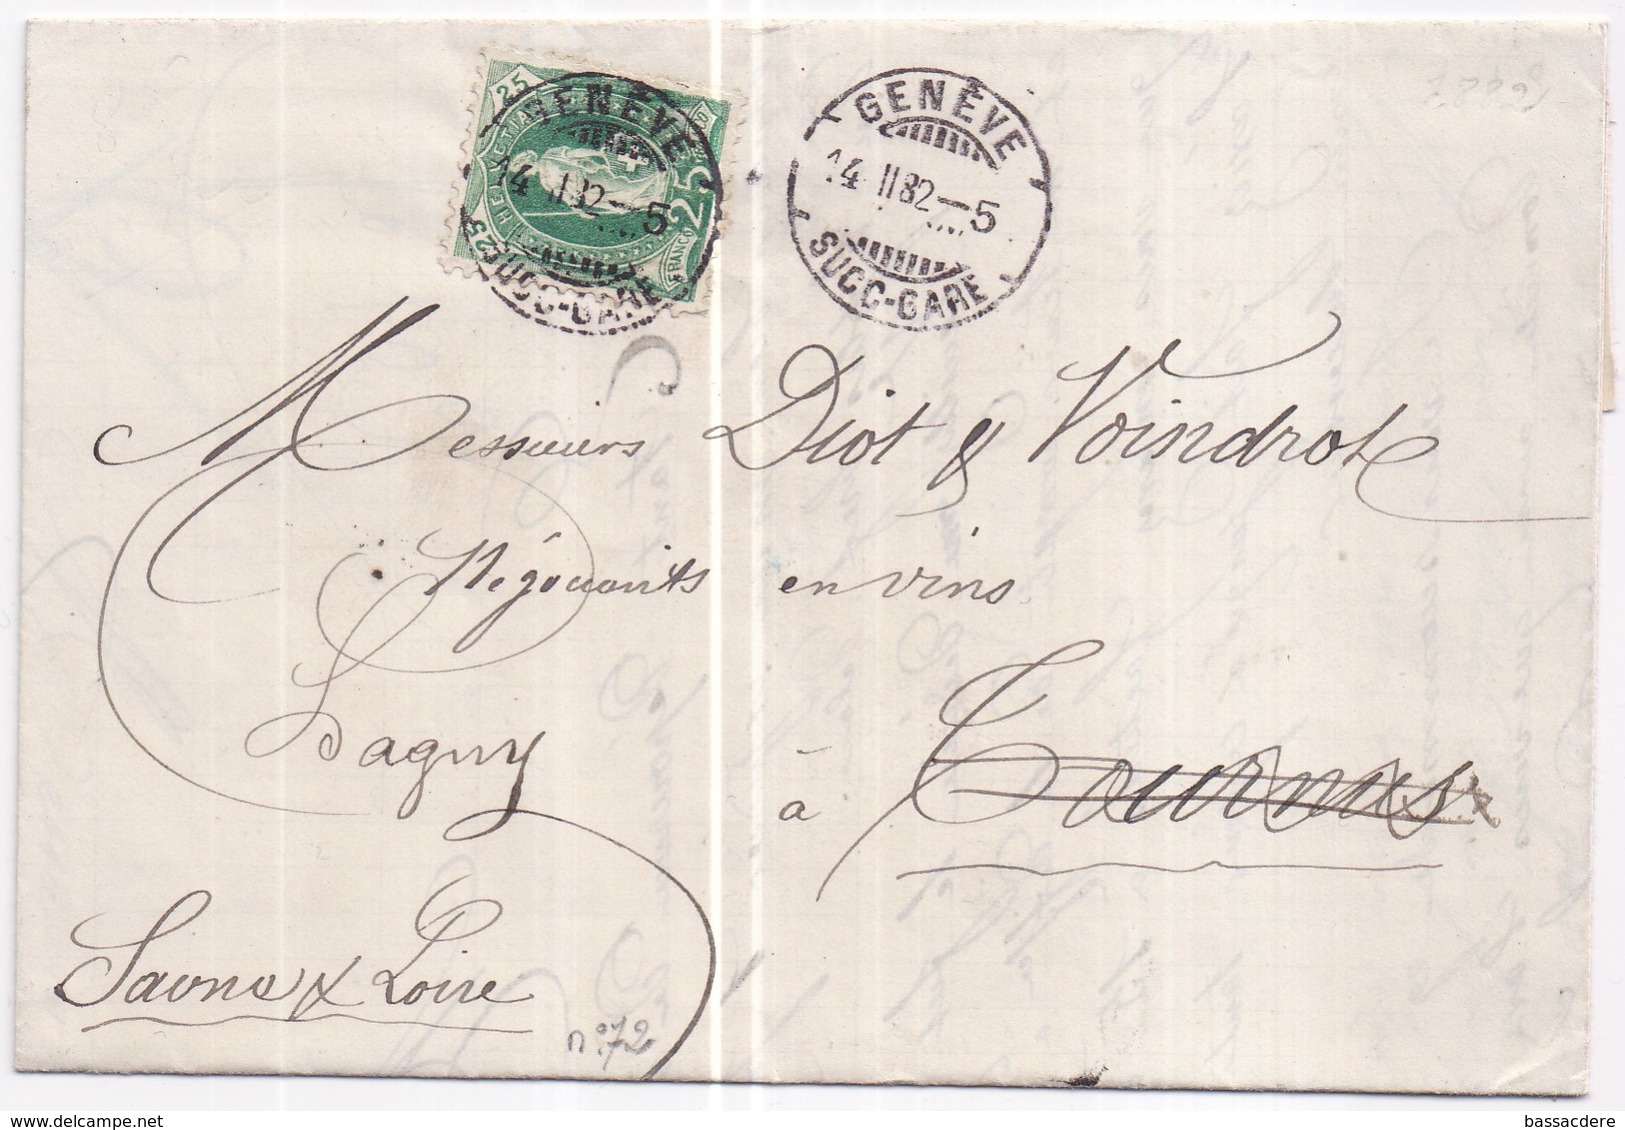 25
HELVETIA
25
FRANCO
25
GENÈVE
14 II 82 - 5
SUCC-GARE
GENÈVE
14 II 82 - 5
SUCC-GARE
Messieurs Diot & Voindrot
Négociants en vins
Lagny
à Tournus
Saône & Loire
n° 72
www.delcampe.net
bassacdere